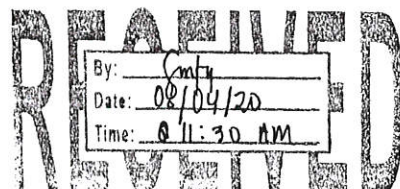 RECEIVED
By:
Date: 08/04/20
Time: @ 11:30 AM